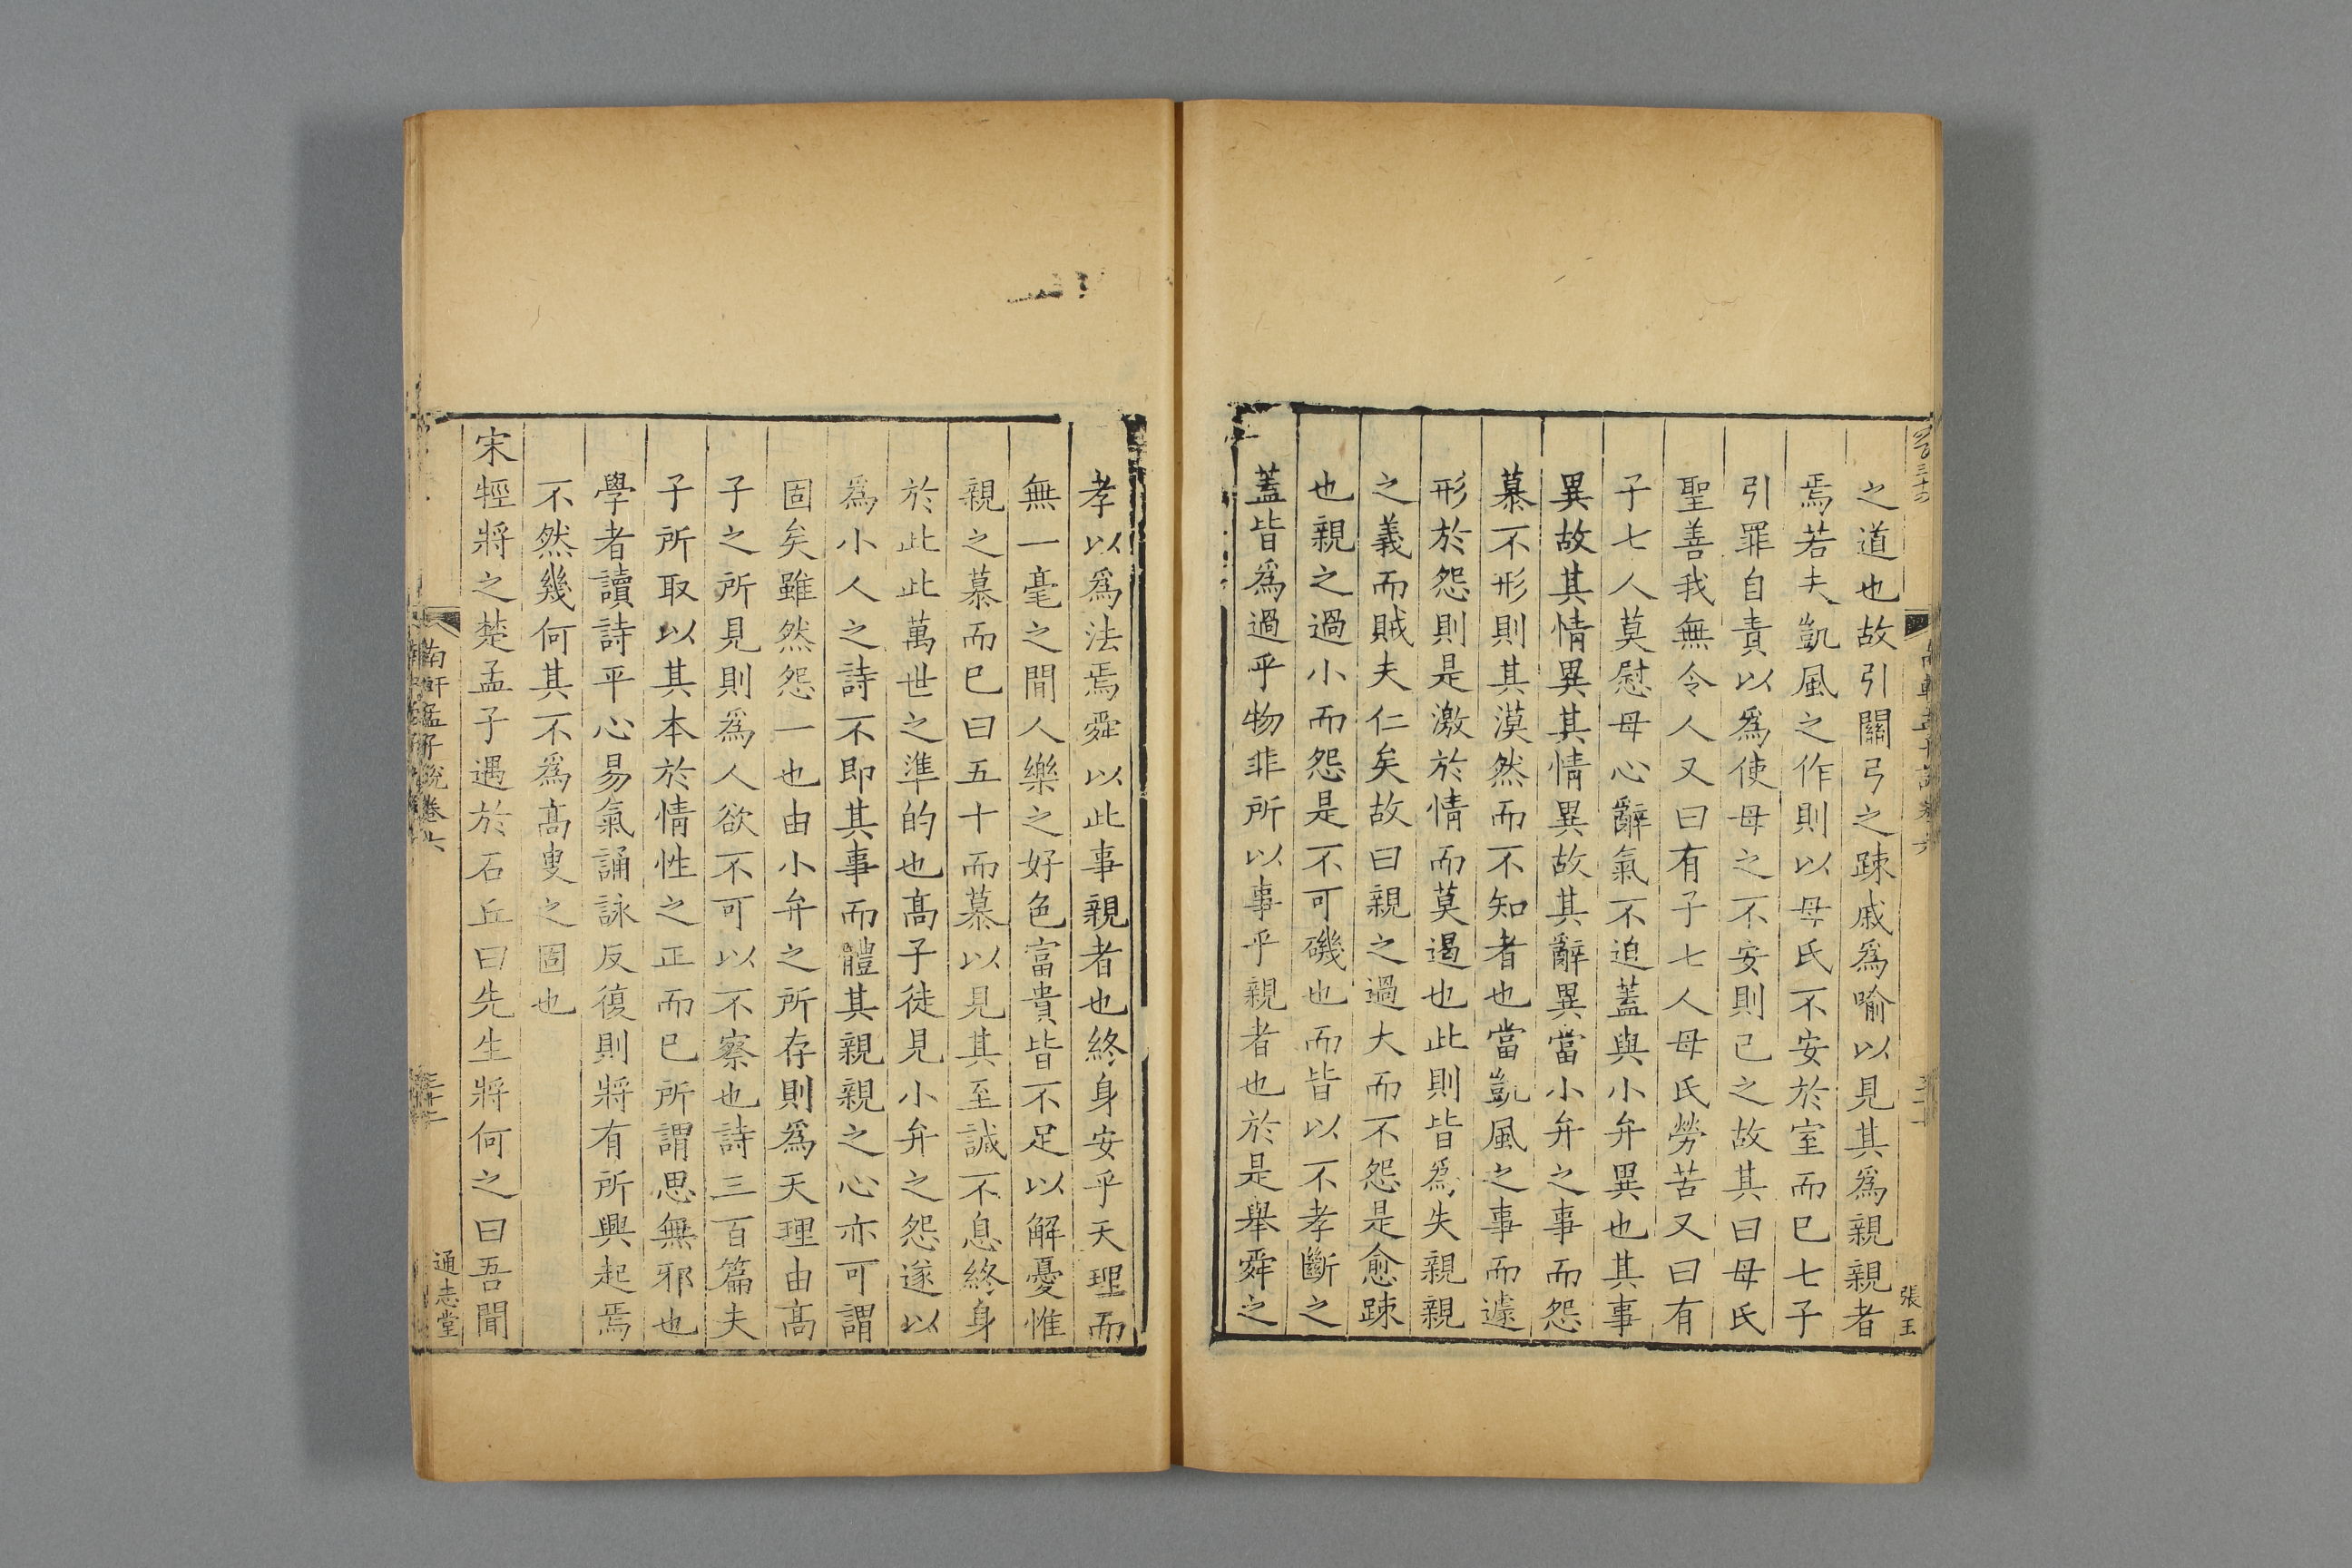 之道也故引關弓之踈戚爲喻以見其爲親親者
焉若夫凱風之作則以母氏不安於室而已七子
引罪自責以爲使母之不安則己之故其曰母氏
聖善我無令人又曰有子七人母氏勞苦又曰有
子七人莫慰母心辭氣不迫蓋與小弁異也其事
異故其情異其情異故其辭異當小弁之事而怨
慕不形則其漠然而不知者也當凱風之事而遽
形於怨則是激於情而莫遏也此則皆爲失親親
之義而賊夫仁矣故曰親之過大而不怨是愈踈
也親之過小而怨是不可磯也而皆以不孝斷之
蓋皆爲過乎物非所以事乎親者也於是舉舜之
張玉
孝以爲法焉舜以此事親者也終身安乎天理而
無一毫之間人樂之好色富貴皆不足以解憂惟
親之慕而已曰五十而慕以見其至誠不息終身
於此此萬世之準的也高子徒見小弁之怨遂以
爲小人之詩不即其事而體其親親之心亦可謂
固矣雖然怨一也由小弁之所存則爲天理由高
子之所見則爲人欲不可以不察也詩三百篇夫
子所取以其本於情性之正而已所謂思無邪也
學者讀詩平心易氣誦詠反復則將有所興起焉
不然幾何其不爲高叟之固也
宋牼將之楚孟子遇於石丘曰先生將何之曰吾聞
南軒孟子說卷六
通志堂